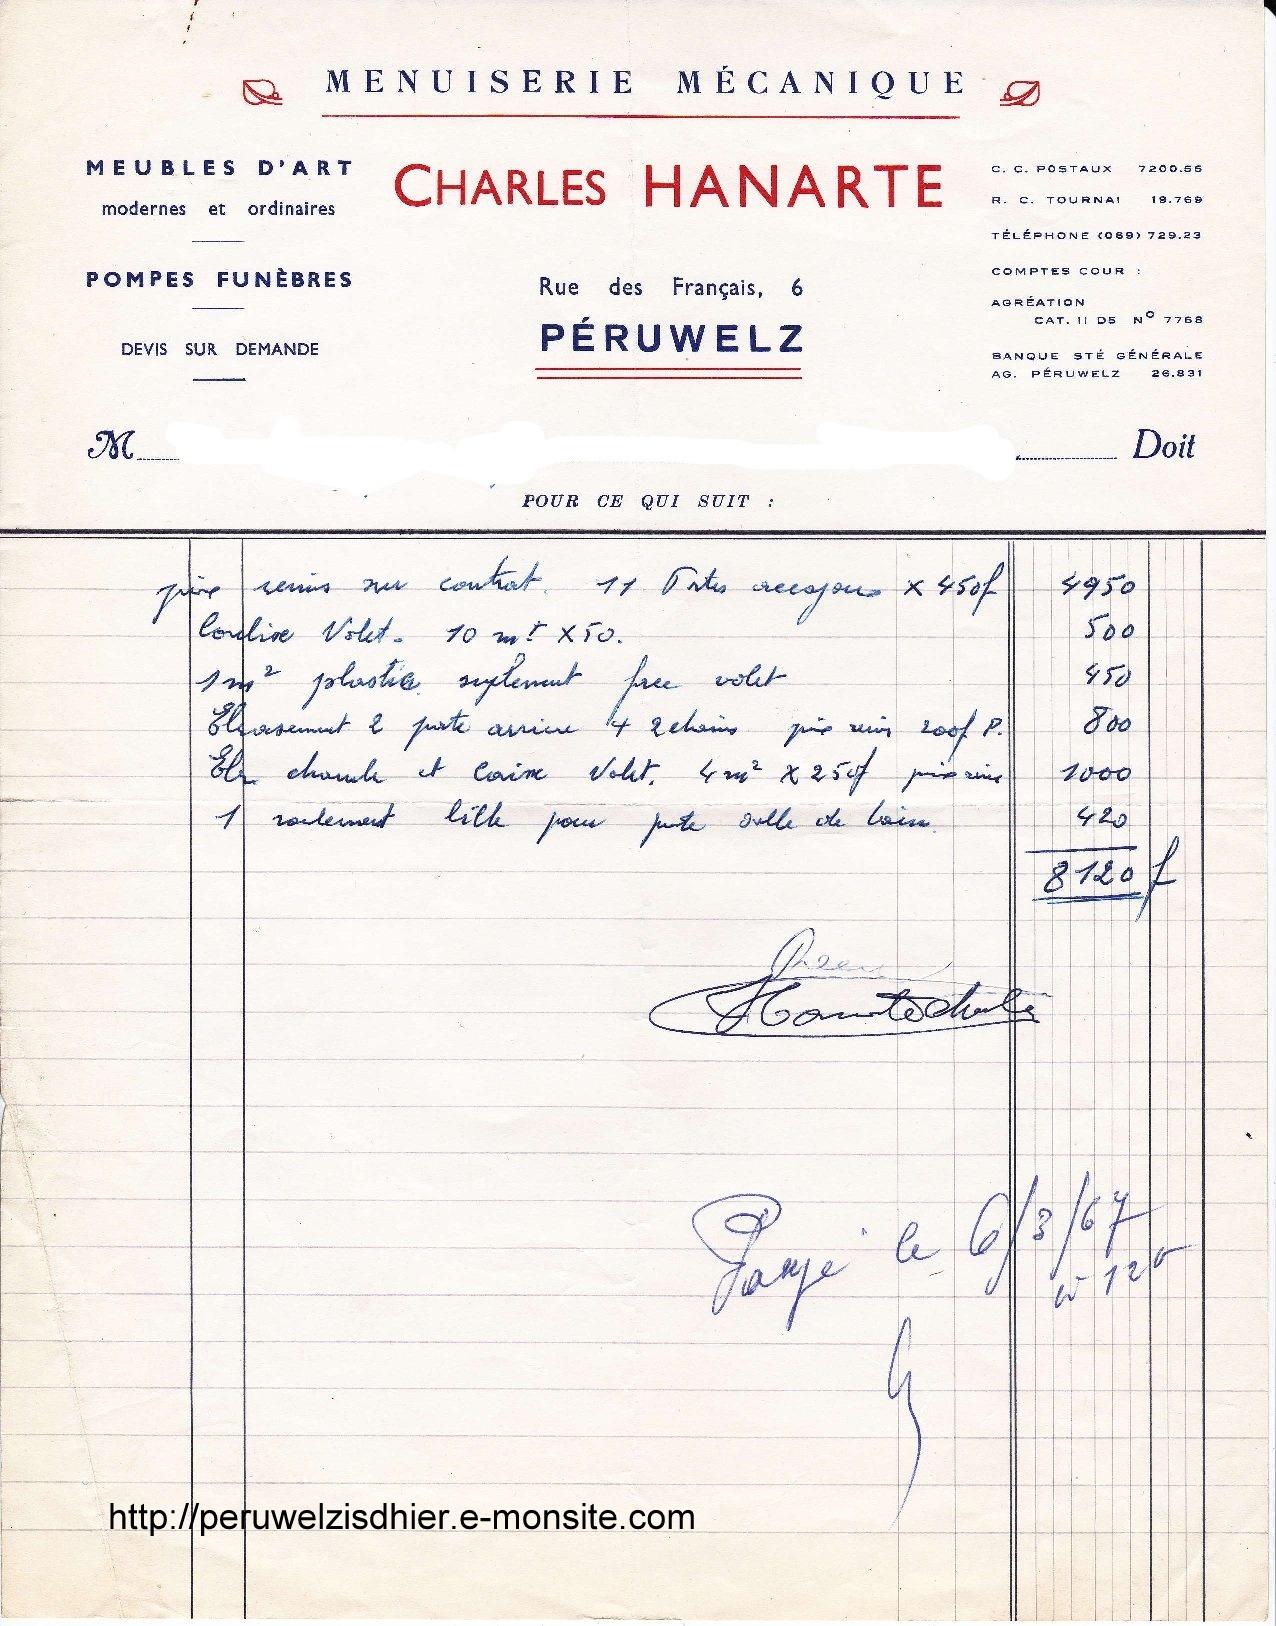 MENUISERIE MÉCANIQUE
MEUBLES D'ART
modernes et ordinaires
POMPES FUNÈBRES
DEVIS SUR DEMANDE
CHARLES HANARTE
Rue des Français, 6
PÉRUWELZ
C. C. POSTAUX 7200.55
R. C. TOURNAI 19.769
TÉLÉPHONE (069) 729.23
COMPTES COUR :
AGRÉATION
CAT. II D5 Nº 7768
BANQUE STÉ GÉNÉRALE
AG. PÉRUWELZ 26.831
M Doit
POUR CE QUI SUIT :
prix remis sur contrat. 11 Portes accajous X 450f 4950
Coulise Volet. 10 mt X 50. 500
1 m² plastic suplement face volet 450
2 porte arriere 4 2 200f P. 800
et Caisse Volet. 4 m² X 250f prix 1000
1 roulement bille pour porte salle de bain 420
8120 f
Hanarte Charles
Payé le 6/3/67
http://peruwelzisdhier.e-monsite.com